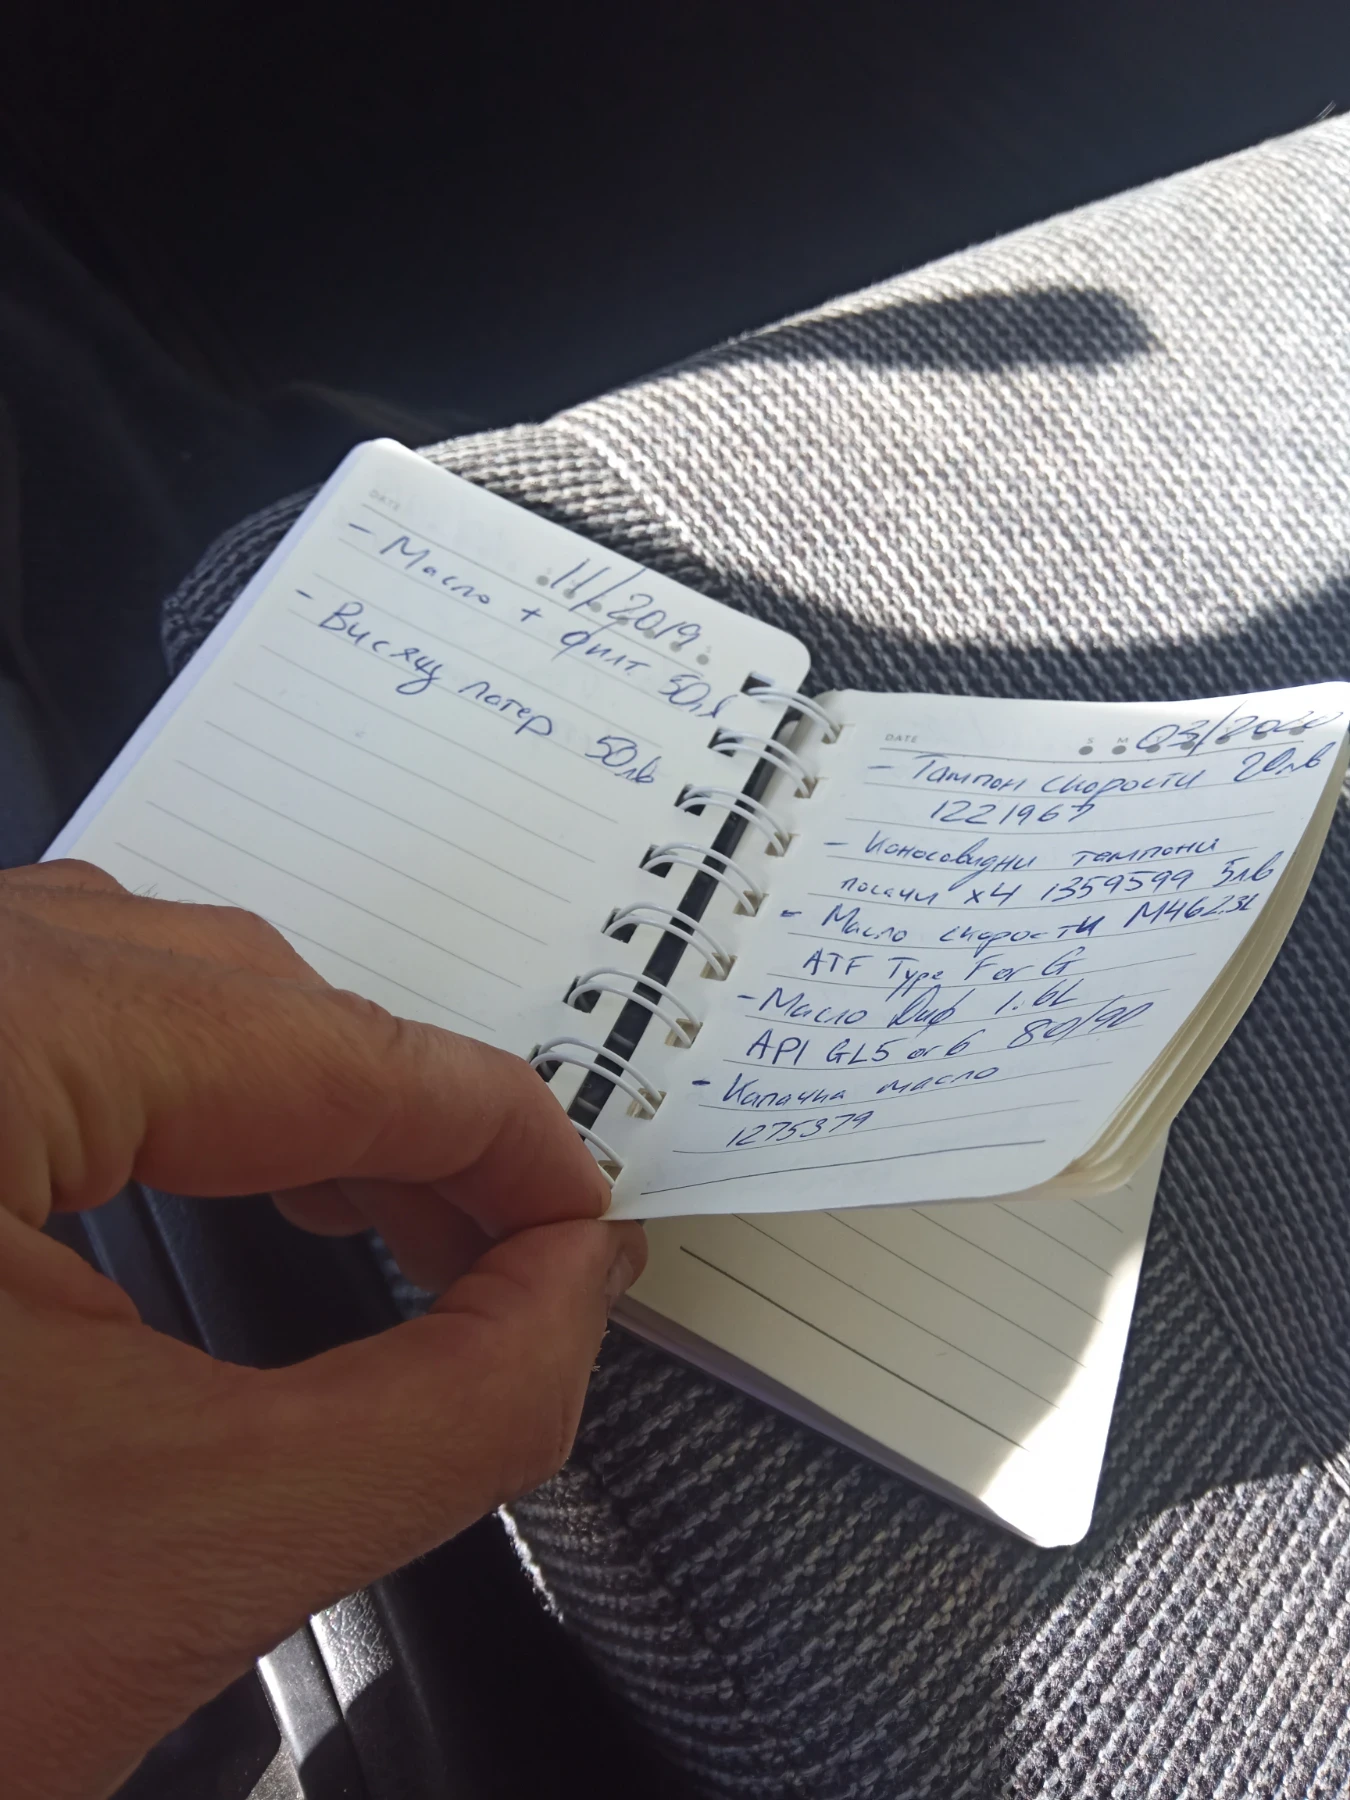 DATE
11/2019
- Масло + филт 50лв
- Висящ лагер 50лв
DATE S M 03/2020
- Тампон скорости 20лв
1221967
- Коносовидни тампони
носачи x4 1359599 5лв
- Масло скорости M46 2.3L
ATF Type F or G
- Масло Диф 1.6L
API GL5 or 6 80/90
- Капачка масло
1275379